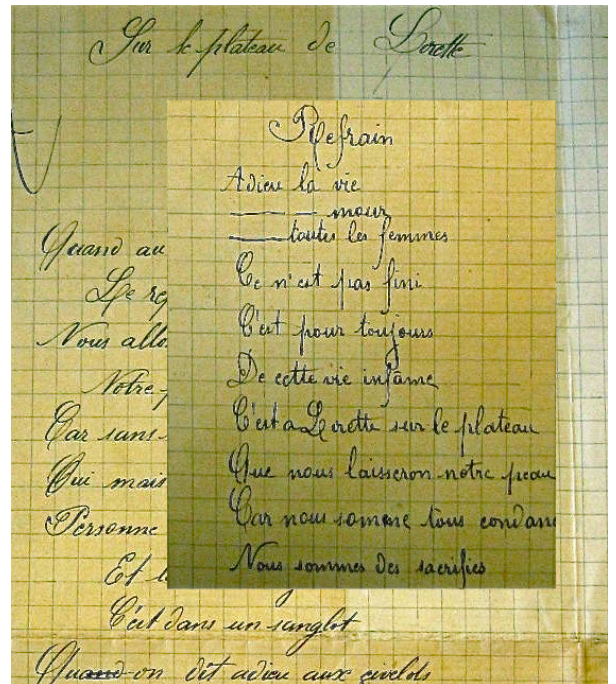 Sur le plateau de Lorette
Refrain
Adieu la vie
—— — mour
—— toutes les femmes
Ce n'est pas fini
C'est pour toujours
De cette vie infâme
C'est a Lorette sur le plateau
Que nous laisseron notre peau
Car nous somme tous condam
Nous sommes des sacrifies
Quand au
Le re
Nous allo
Notre
Car sans
Oui mais
Personne
Et l
C'est dans un sanglot
Quand on dit adieu aux civelots